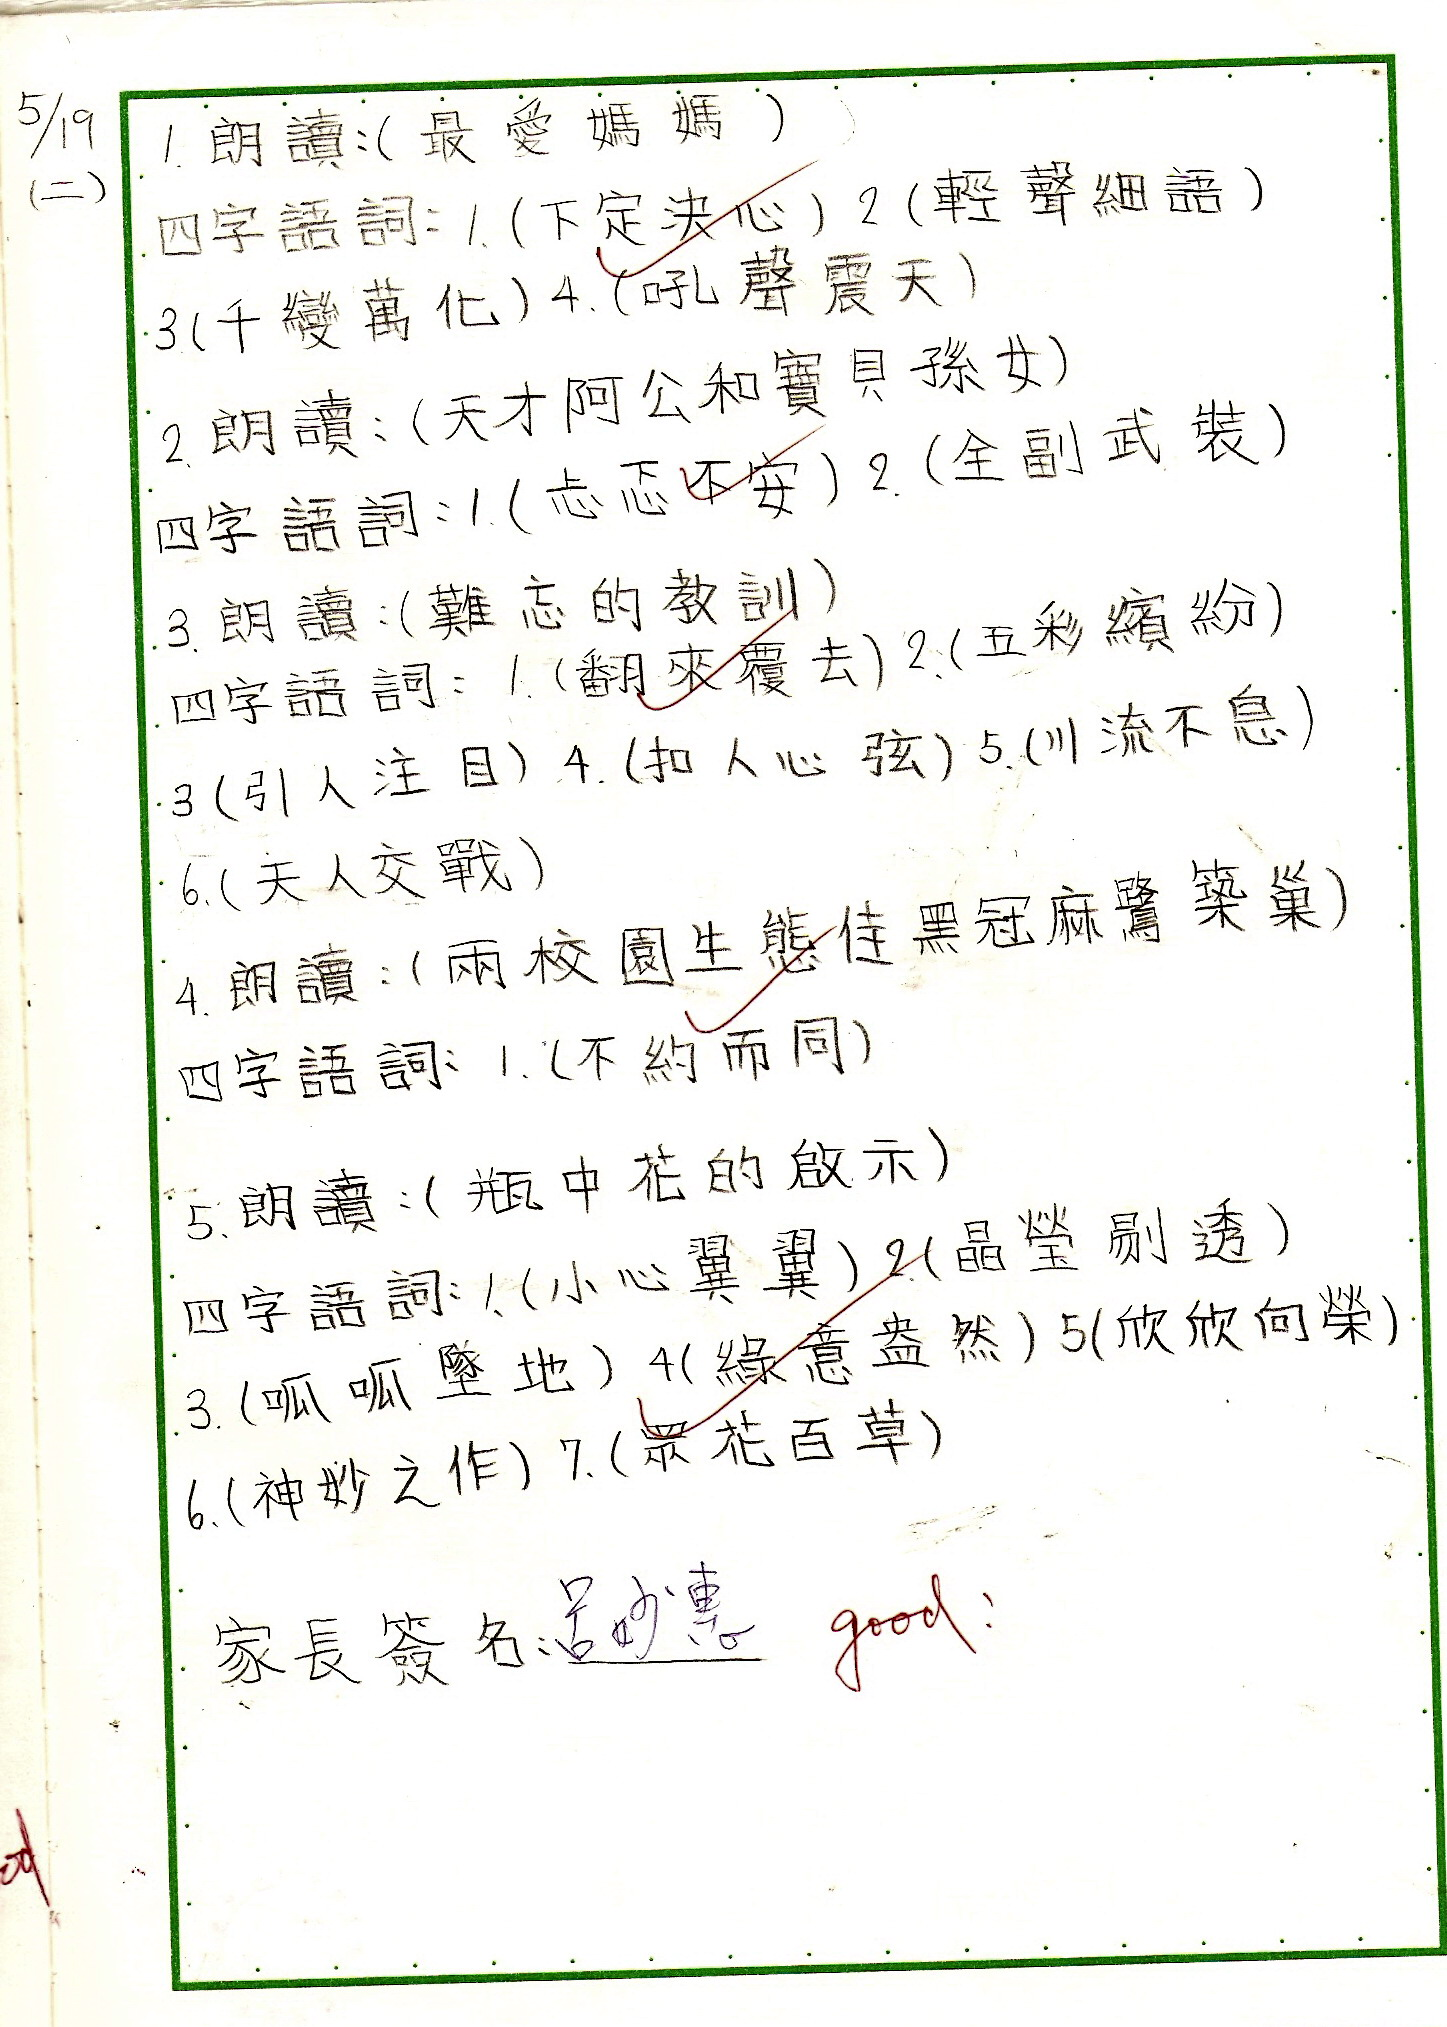 5/19
(二)
1. 朗讀:(最愛媽媽)
四字語詞:1.(下定決心)2(輕聲細語)
3(千變萬化)4.(吼聲震天)
2. 朗讀:(天才阿公和寶貝孫女)
四字語詞:1.(忐忑不安)2.(全副武裝)
3. 朗讀:(難忘的教訓)
四字語詞:1.(翻來覆去)2.(五彩繽紛)
3(引人注目)4.(扣人心弦)5.(川流不息)
6.(天人交戰)
4. 朗讀:(兩校園生態佳黑冠麻鷺築巢)
四字語詞:1.(不約而同)
5. 朗讀:(瓶中花的啟示)
四字語詞:1.(小心翼翼)2.(晶瑩剔透)
3.(呱呱墜地)4(綠意盎然)5(欣欣向榮)
6.(神妙之作)7.(眾花百草)
家長簽名:呂妙惠 good!
od